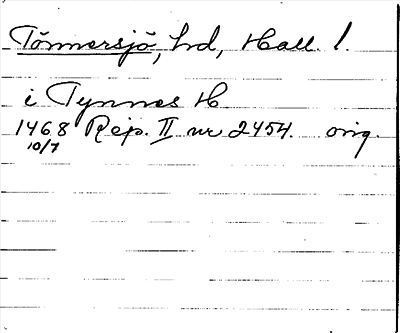 Tönnersjö, hd, Hall. l.
i Tynnes H
1468 Rep. II nr 2454. orig.
10/7